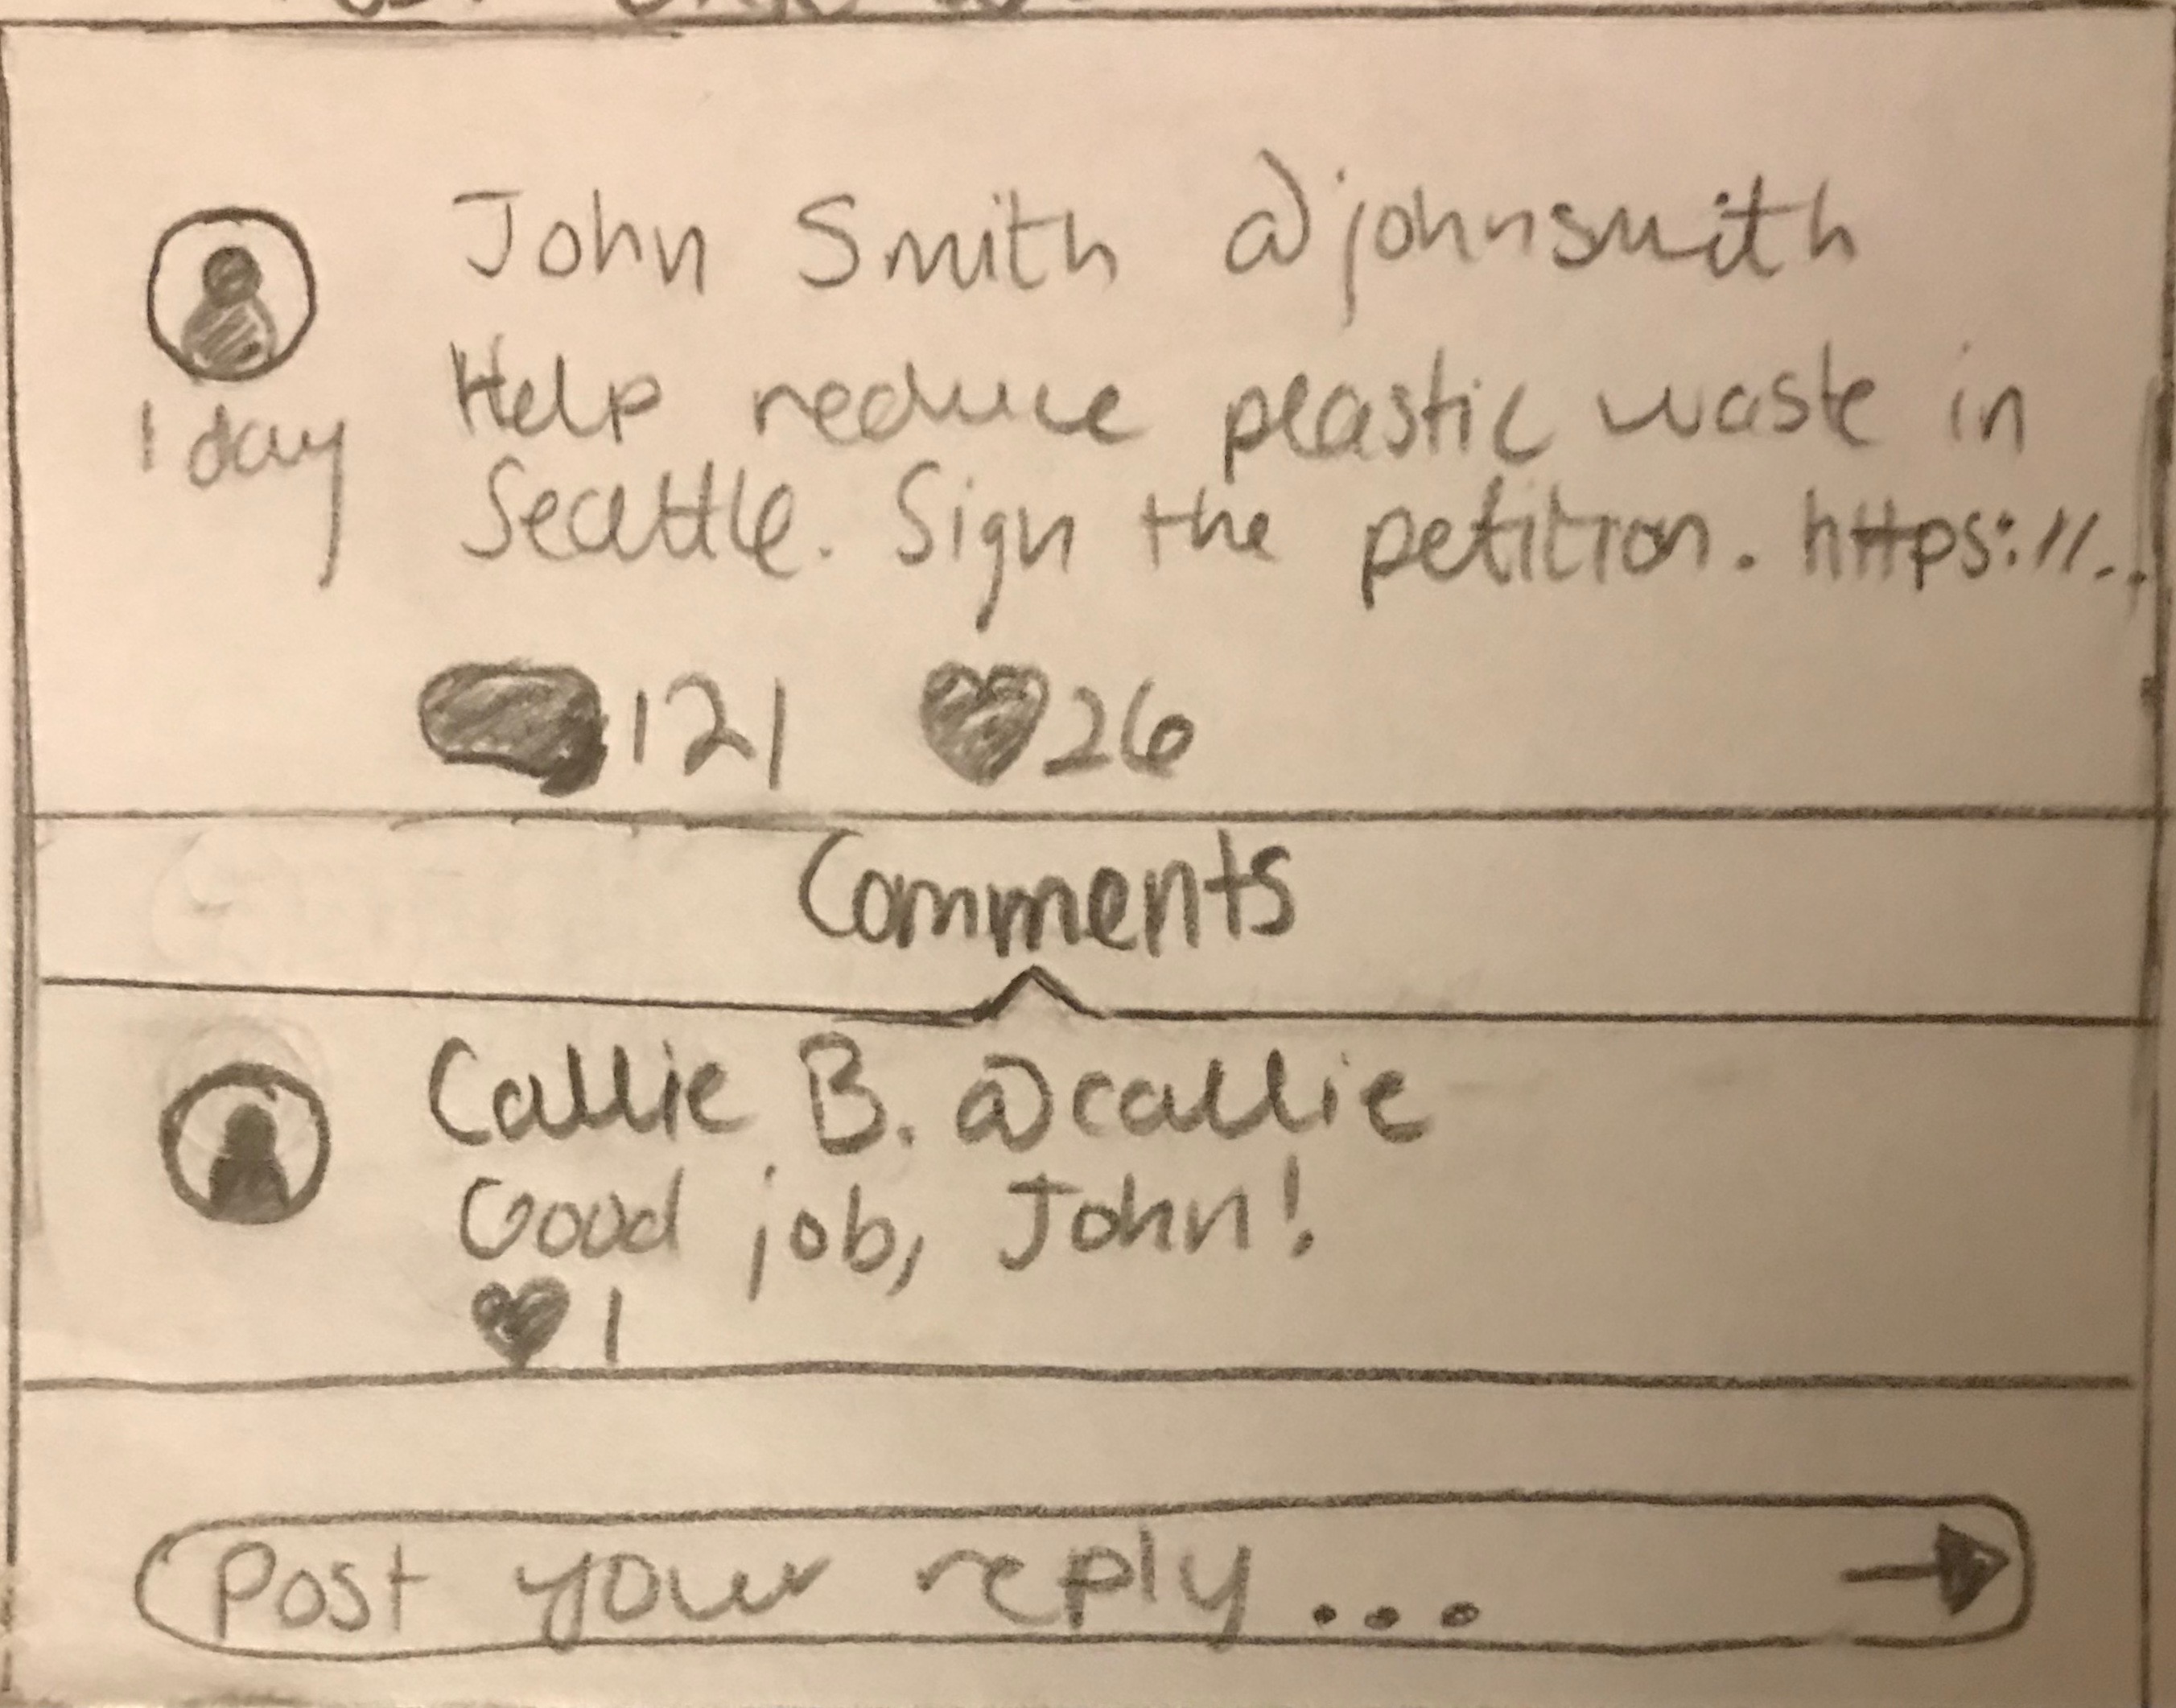 John Smith @johnsmith
1 day
Help reduce plastic waste in
Seattle. Sign the petition. https://..
121 26
Comments
Callie B. @callie
Good job, John!
1
Post your reply...